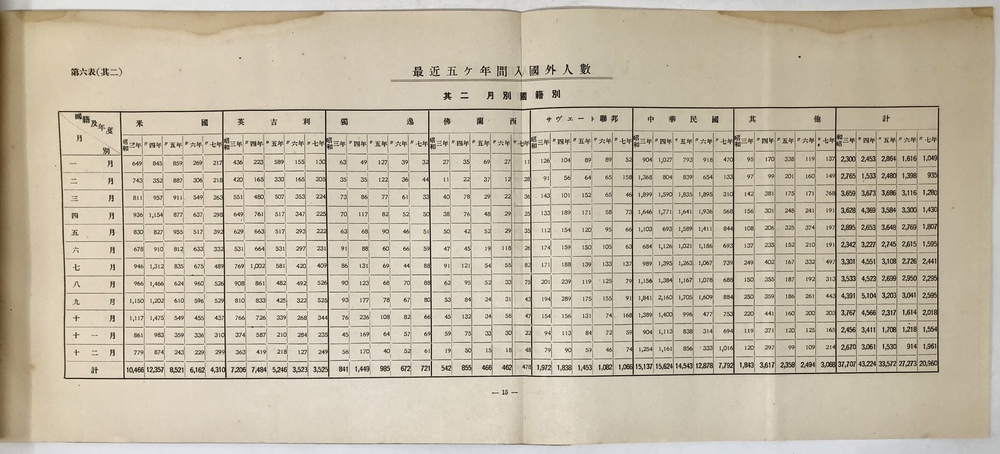 第六表(其二)
最近五ケ年間入國外人數
其二 月別國籍別
國籍及年度 米國 英吉利 獨逸 佛蘭西 サヴェート聯邦 中華民國 其他 計
月別 昭和三年 〃四年 〃五年 〃六年 〃七年 昭和三年 〃四年 〃五年 〃六年 〃七年 昭和三年 〃四年 〃五年 〃六年 〃七年 昭和三年 〃四年 〃五年 〃六年 〃七年 昭和三年 〃四年 〃五年 〃六年 〃七年 昭和三年 〃四年 〃五年 〃六年 〃七年 昭和三年 〃四年 〃五年 〃六年 〃七年 昭和三年 〃四年 〃五年 〃六年 〃七年
一月 649 845 859 269 217 436 223 589 155 130 63 49 127 39 32 27 35 69 27 11 126 104 89 89 52 904 1,027 793 918 470 95 170 338 119 137 2,300 2,453 2,864 1,616 1,049
二月 743 352 887 306 218 420 165 330 165 205 35 35 122 36 44 11 22 37 12 28 91 56 64 65 158 1,368 804 839 654 133 97 99 201 160 149 2,765 1,533 2,480 1,398 935
三月 811 957 911 549 263 551 480 507 353 224 73 86 77 61 33 40 78 29 22 36 143 101 152 65 46 1,899 1,590 1,835 1,895 310 142 381 175 171 768 3,659 3,673 3,686 3,116 1,280
四月 936 1,154 877 637 298 649 761 517 347 225 70 117 82 52 50 38 76 48 29 25 133 189 171 58 73 1,646 1,771 1,641 1,936 568 156 301 248 241 191 3,628 4,369 3,584 3,300 1,430
五月 830 827 955 517 392 629 663 517 293 222 63 68 90 46 51 50 42 52 29 35 112 154 120 95 66 1,103 693 1,589 1,411 844 108 206 325 374 197 2,895 2,653 3,648 2,769 1,807
六月 678 910 812 633 332 531 664 531 297 231 91 88 60 66 59 47 45 19 118 26 174 159 150 105 63 684 1,126 1,021 1,186 693 137 235 152 210 191 2,342 3,227 2,745 2,615 1,595
七月 946 1,312 835 675 489 769 1,002 581 420 409 86 131 69 44 88 91 121 54 55 82 171 188 139 133 137 989 1,395 1,263 1,067 739 249 402 167 332 497 3,301 4,551 3,108 2,726 2,441
八月 966 1,466 624 960 526 908 861 482 492 526 90 123 68 70 88 62 95 52 33 75 201 239 119 125 79 1,156 1,384 1,167 1,078 688 150 355 187 192 313 3,533 4,523 2,699 2,950 2,295
九月 1,150 1,202 610 596 529 810 833 425 322 525 93 177 78 67 80 53 84 24 31 43 194 289 175 155 91 1,841 2,160 1,705 1,609 884 250 359 186 261 443 4,391 5,104 3,203 3,041 2,595
十月 1,117 1,475 549 455 437 766 726 339 268 344 76 236 108 82 66 45 132 34 56 47 154 156 131 74 168 1,389 1,400 996 477 753 220 441 160 200 203 3,767 4,566 2,317 1,614 2,018
十一月 861 983 359 336 310 374 587 210 284 235 45 169 64 57 69 59 75 33 30 22 94 113 84 72 59 904 1,113 838 314 694 119 371 120 125 165 2,456 3,411 1,708 1,218 1,554
十二月 779 874 243 229 299 363 419 218 127 249 56 170 40 52 61 19 50 15 18 48 79 90 59 46 74 1,254 1,161 856 333 1,016 120 297 99 109 214 2,670 3,061 1,530 914 1,961
計 10,466 12,357 8,521 6,162 4,310 7,206 7,484 5,246 3,523 3,525 841 1,449 985 672 721 542 855 466 462 478 1,972 1,838 1,453 1,082 1,066 15,137 15,624 14,543 12,878 7,792 1,843 3,617 2,358 2,494 3,068 37,707 43,224 33,572 27,273 20,960
— 15 —